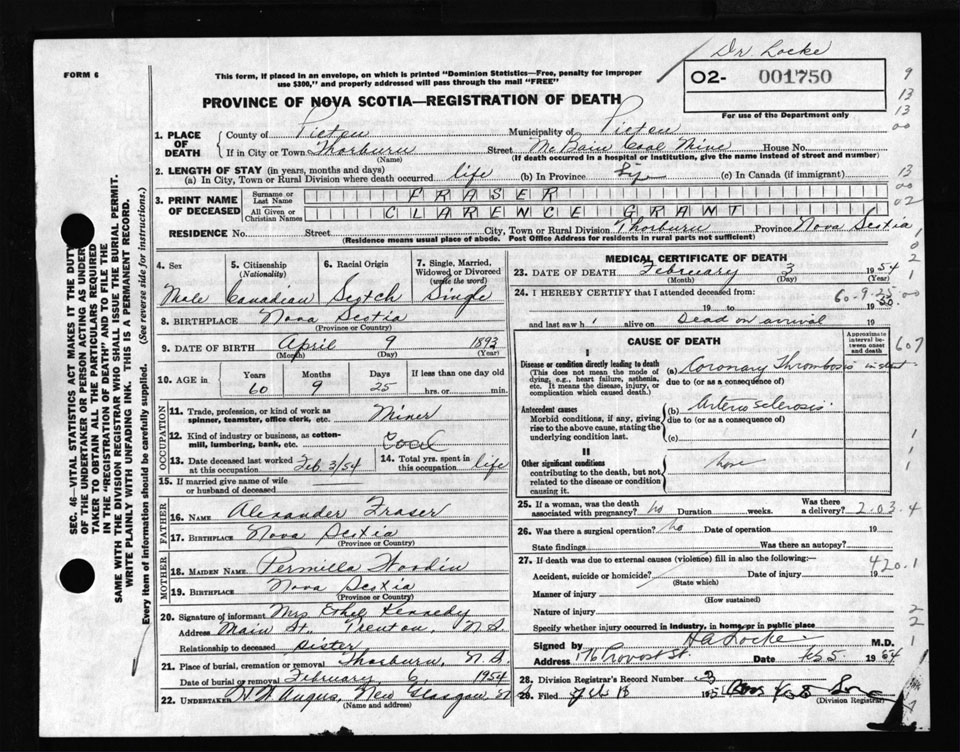 Dr. Locke
FORM 6
This form, if placed in an envelope, on which is printed "Dominion Statistics—Free, penalty for improper use $300," and properly addressed will pass through the mail "FREE"
O2- 001750
For use of the Department only
PROVINCE OF NOVA SCOTIA—REGISTRATION OF DEATH
1. PLACE OF DEATH County of Pictou Municipality of Pictou
If in City or Town Thorburn Street McBain Coal Mine House No.
(Name) (If death occurred in a hospital or institution, give the name instead of street and number)
2. LENGTH OF STAY (in years, months and days)
(a) In City, Town or Rural Division where death occurred life (b) In Province life (c) In Canada (if immigrant)
3. PRINT NAME OF DECEASED Surname or Last Name FRASER
All Given or Christian Names CLARENCE GRANT
RESIDENCE No. Street City, Town or Rural Division Thorburn Province Nova Scotia
(Residence means usual place of abode. Post Office Address for residents in rural parts not sufficient)
4. Sex Male
5. Citizenship (Nationality) Canadian
6. Racial Origin Scotch
7. Single, Married, Widowed or Divorced (write the word) Single
8. BIRTHPLACE Nova Scotia
(Province or Country)
9. DATE OF BIRTH April 9 1893
(Month) (Day) (Year)
10. AGE in Years 60 Months 9 Days 25 If less than one day old hrs. or min.
OCCUPATION
11. Trade, profession, or kind of work as spinner, teamster, office clerk, etc. Miner
12. Kind of industry or business, as cotton-mill, lumbering, bank, etc. Coal
13. Date deceased last worked at this occupation Feb 3/54
14. Total yrs. spent in this occupation life
15. If married give name of wife or husband of deceased
FATHER
16. NAME Alexander Fraser
17. BIRTHPLACE Nova Scotia
(Province or Country)
MOTHER
18. MAIDEN NAME Permilla Woodin
19. BIRTHPLACE Nova Scotia
(Province or Country)
20. Signature of informant Mrs. Ethel Kennedy
Address Main St., Trenton, N.S.
Relationship to deceased sister
21. Place of burial, cremation or removal Thorburn, N.S.
Date of burial or removal February 6, 1954
22. UNDERTAKER H W Angus, New Glasgow
(Name and address)
MEDICAL CERTIFICATE OF DEATH
23. DATE OF DEATH February 3 1954
(Month) (Day)
24. I HEREBY CERTIFY that I attended deceased from: 60-9-25
19 to 19
and last saw h alive on Dead on arrival 19
CAUSE OF DEATH
Approximate interval between onset and death
I
Disease or condition directly leading to death
(This does not mean the mode of dying, e.g., heart failure, asthenia, etc. It means the disease, injury, or complication which caused death.)
(a) Coronary Thrombosis instant
due to (or as a consequence of)
Antecedent causes
Morbid conditions, if any, giving rise to the above cause, stating the underlying condition last.
(b) Arterio sclerosis
due to (or as a consequence of)
(c)
II
Other significant conditions
contributing to the death, but not related to the disease or condition causing it.
none
25. If a woman, was the death associated with pregnancy? no Duration weeks. Was there a delivery? 2.03.4
26. Was there a surgical operation? no Date of operation 19
State findings Was there an autopsy?
27. If death was due to external causes (violence) fill in also the following:— 420.1
Accident, suicide or homicide? Date of injury 19
(State which)
Manner of injury
(How sustained)
Nature of injury
Specify whether injury occurred in industry, in home, or in public place
Signed by H A Locke M.D.
Address 176 Provost St. Date Feb 5 1954
28. Division Registrar's Record Number 3
29. Filed Feb 18 195
(Division Registrar)
SEC. 46—VITAL STATISTICS ACT MAKES IT THE DUTY OF THE UNDERTAKER OR PERSON ACTING AS UNDERTAKER TO OBTAIN ALL THE PARTICULARS REQUIRED IN THE "REGISTRATION OF DEATH" AND TO FILE THE SAME WITH THE DIVISION REGISTRAR WHO SHALL ISSUE THE BURIAL PERMIT.
WRITE PLAINLY WITH UNFADING INK. THIS IS A PERMANENT RECORD.
Every item of information should be carefully supplied. (See reverse side for instructions.)
9
13
13
00
13
00
02
1
0
2
1
00
607
1
1
1
2
2
1